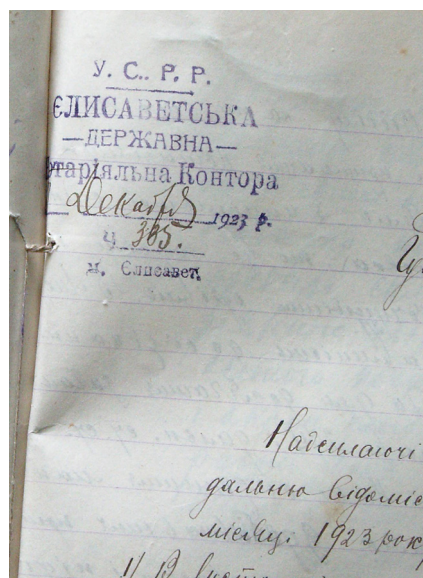 У. С. Р. Р.
ЄЛИСАВЕТСЬКА
—ДЕРЖАВНА—
таріяльна Контора
Декабря 1923 р.
Ч 385.
м. Єлисавет.
Надсилаючі
дальню відоміс
місяці 1923 рок